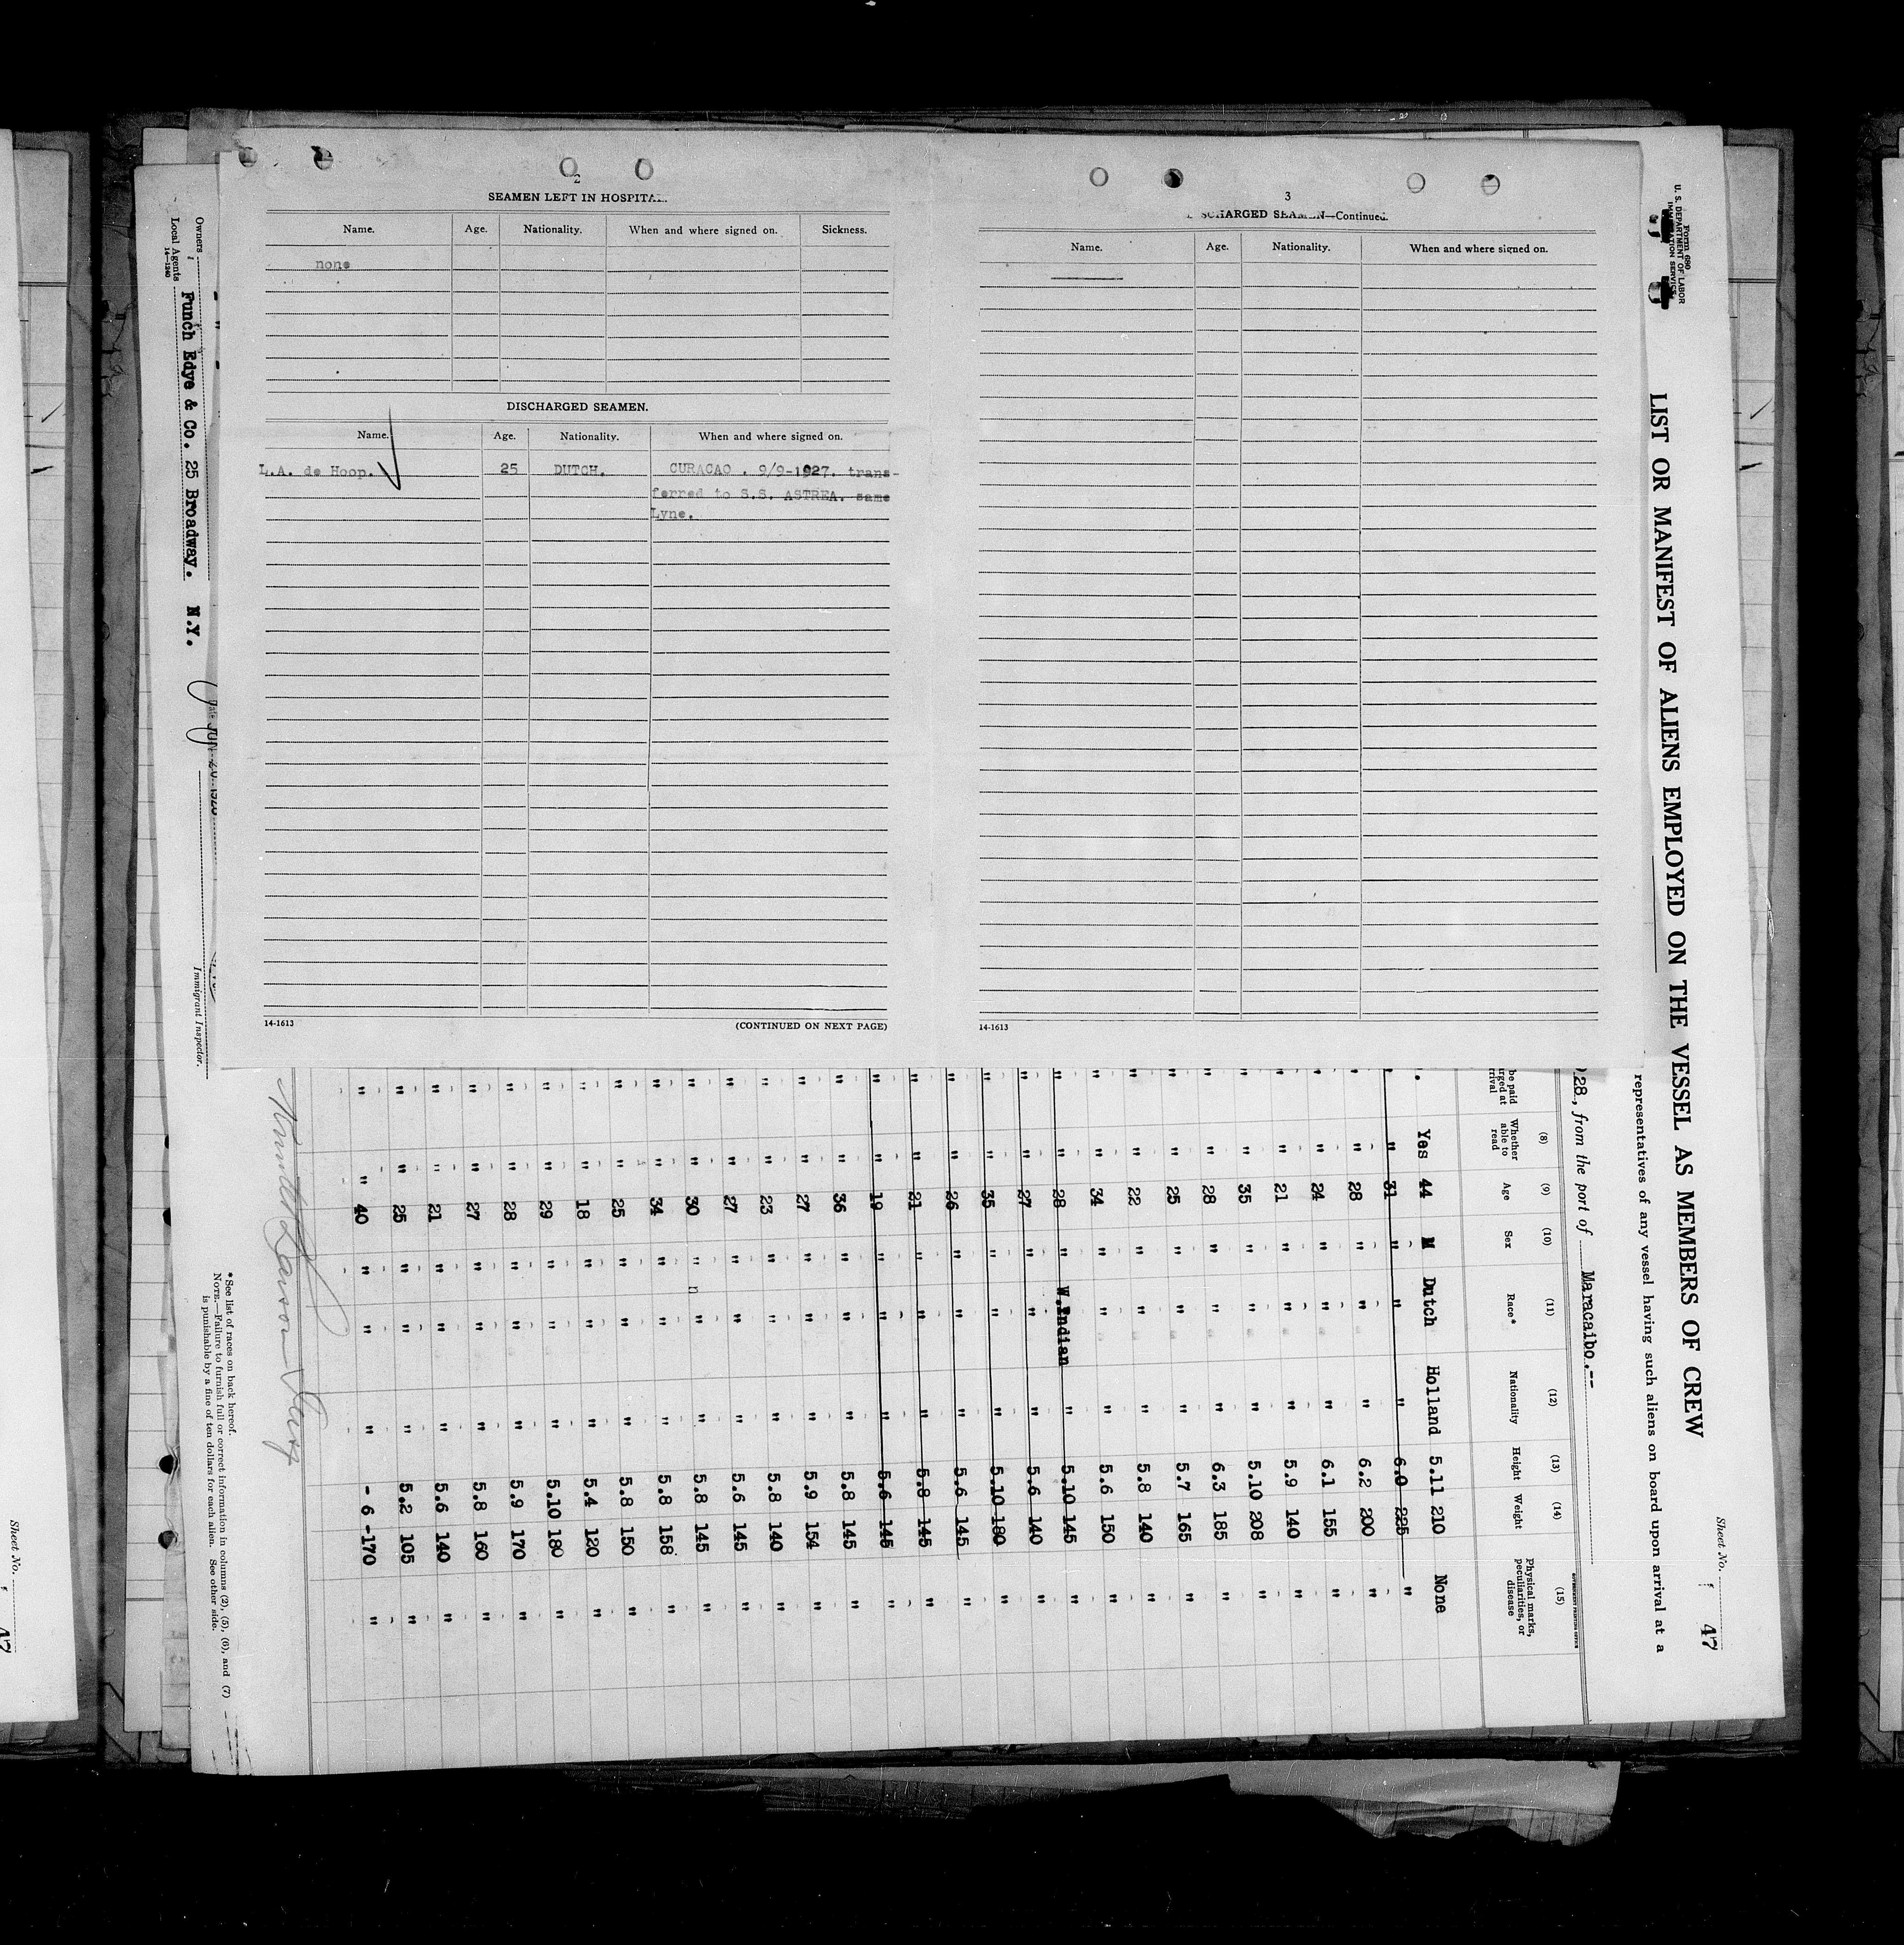 2
SEAMEN LEFT IN HOSPITAL.
Name. Age. Nationality. When and where signed on. Sickness.
none
DISCHARGED SEAMEN.
Name. Age. Nationality. When and where signed on.
L.A. de Hoop. 25 DUTCH. CURACAO . 9/9-1927. trans-
ferred to S.S. ASTREA. same
Lyne.
14-1613 (CONTINUED ON NEXT PAGE)
3
SCHARGED SEAMEN—Continued.
Name. Age. Nationality. When and where signed on.
14-1613
Form 680
U. S. DEPARTMENT OF LABOR
IMMIGRATION SERVICE
Sheet No. 47
LIST OR MANIFEST OF ALIENS EMPLOYED ON THE VESSEL AS MEMBERS OF CREW
representatives of any vessel having such aliens on board upon arrival at a
28, from the port of Maracaibo.--
(8) (9) (10) (11) (12) (13) (14) (15)
be paid
Whether able to read Age Sex Race* Nationality Height Weight Physical marks, peculiarities, or disease
Yes 44 M Dutch Holland 5.11 210 None
" 31 " " " 6.0 225 "
" " 28 " " " 6.2 200 "
" " 24 " " " 6.1 155 "
" " 21 " " " 5.9 140 "
" " 35 " " " 5.10 208 "
" " 28 " " " 6.3 185 "
" " 25 " " " 5.7 165 "
" " 22 " " " 5.8 140 "
" " 34 " " " 5.6 150 "
" " 28 " W.Indian " 5.10 145 "
" " 27 " " " 5.6 140 "
" " 35 " " " 5.10 180 "
" " 26 " " " 5.6 145 "
" " 21 " " " 5.8 145 "
" " 19 " " " 5.6 145 "
" " 36 " " " 5.8 145 "
" " 27 " " " 5.9 154 "
" " 23 " " " 5.8 140 "
" " 27 " " " 5.6 145 "
" " 30 " " " 5.8 145 "
" " 34 " " " 5.8 158 "
" " 25 " " " 5.8 150 "
" " 18 " " " 5.4 120 "
" " 29 " " " 5.10 180 "
" " 28 " " " 5.9 170 "
" " 27 " " " 5.8 160 "
" " 21 " " " 5.6 140 "
" " 25 " " " 5.2 105 "
" " 40 " " " - 6 -170 "
*See list of races on back hereof.
NOTE.—Failure to furnish full or correct information in columns (2), (5), (6), and (7)
is punishable by a fine of ten dollars for each alien. See other side.
Immigrant Inspector.
Owners
Local Agents Funch Edye & Co. 25 Broadway. N.Y.
14-1240
Sheet No.
47